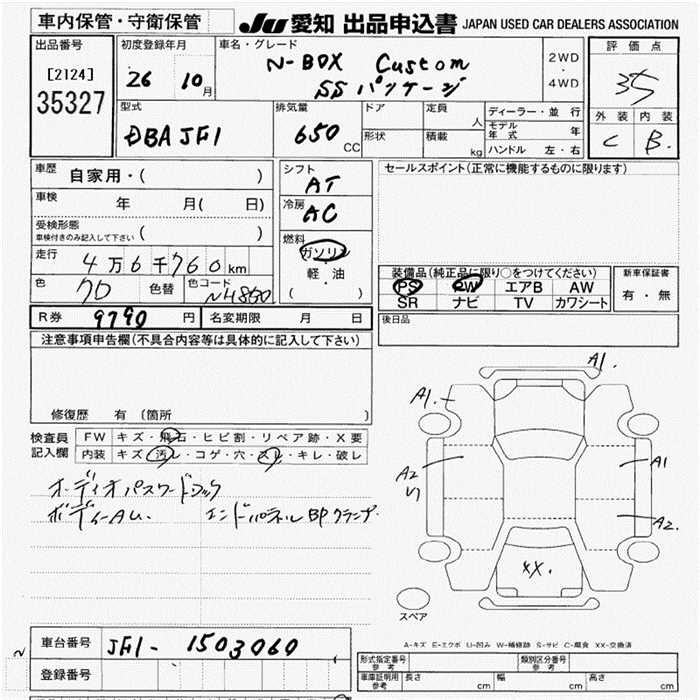 車内保管・守衛保管
JU 愛知 出品申込書 JAPAN USED CAR DEALERS ASSOCIATION
出品番号
[2124]
35327
初度登録年月
26 10月
車名・グレード
N-BOX Custom
SSパッケージ
2WD
・
4WD
評価点
3.5
外装 内装
C B
型式
DBA JF1
排気量
650 CC
ドア
形状
定員 人
積載 kg
ディーラー・並行
モデル年式 年
ハンドル 左・右
車歴
自家用・( )
車検 年 月( 日)
受検形態
車検付きのみ記入して下さい ( )
走行 4万6千760km
色 色替 色コード
NH850
シフト
AT
冷房
AC
燃料
ガソリン
・
軽・油
( )
セールスポイント(正常に機能するものに限ります)
装備品(純正品に限り○をつけてください)
PS PW エアB AW
SR ナビ TV カワシート
新車保証書
有・無
R券 9790円 名変期限 月 日
後日品
注意事項申告欄(不具合内容等は具体的に記入して下さい)
修復歴 有 (箇所 )
検査員記入欄
FW キズ・飛石・ヒビ割・リペア跡・X要
内装 キズ・汚レ・コゲ・穴・スレ・キレ・破レ
オーディオパスワードロック
ボディーAU. エンドパネルBPクランプ.
A1.
A1.
A2
U1
A1
A2.
XX.
スペア
A-キズ E-エクボ U-凹み W-補修跡 S-サビ C-腐食 XX-交換済
車台番号 JF1-1503060
登録番号
形式指定番号
参考
類別区分番号
参考
車庫証明用
参考
長さ cm 幅 cm 高さ cm